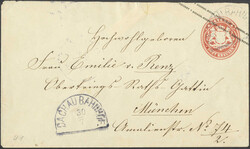 Hochwohlgeboren
Frau Emilie v. Benz
Obertriegs-Raths Gattin
München
Amalienstr. No 74/2.
DACHAU BAHNHOF